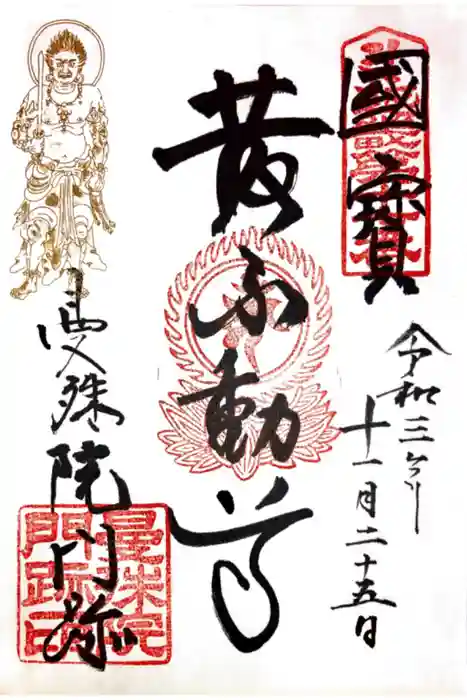 國寶
令和三年
十一月二十五日
黄不動尊
曼殊院門跡
曼殊院
門跡印